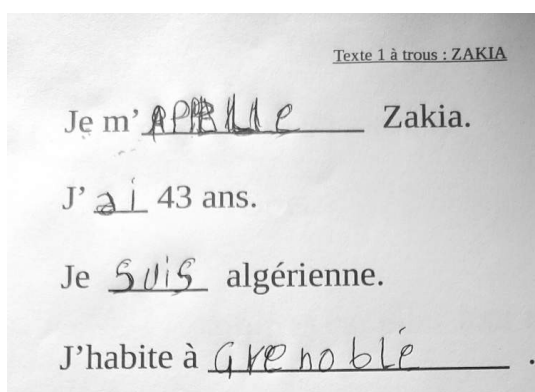 Texte 1 à trous : ZAKIA
Je m’ Zakia.
J’ ai 43 ans.
Je suis algérienne.
J’habite à Grenoblé .